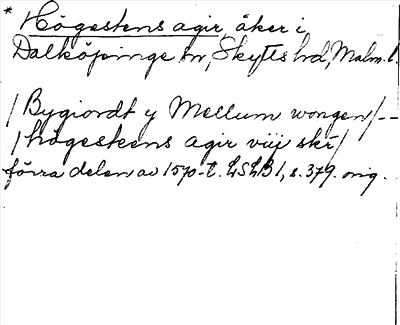 * Högestens agir, åker i
Dalköpinge sn, Skytts hd, Malm. l.
/ Bygiordt y Mellum wongen / --
/ högesteens agir viij skr /
förra delen av 1570-t. LSLB 1, s. 379. orig.